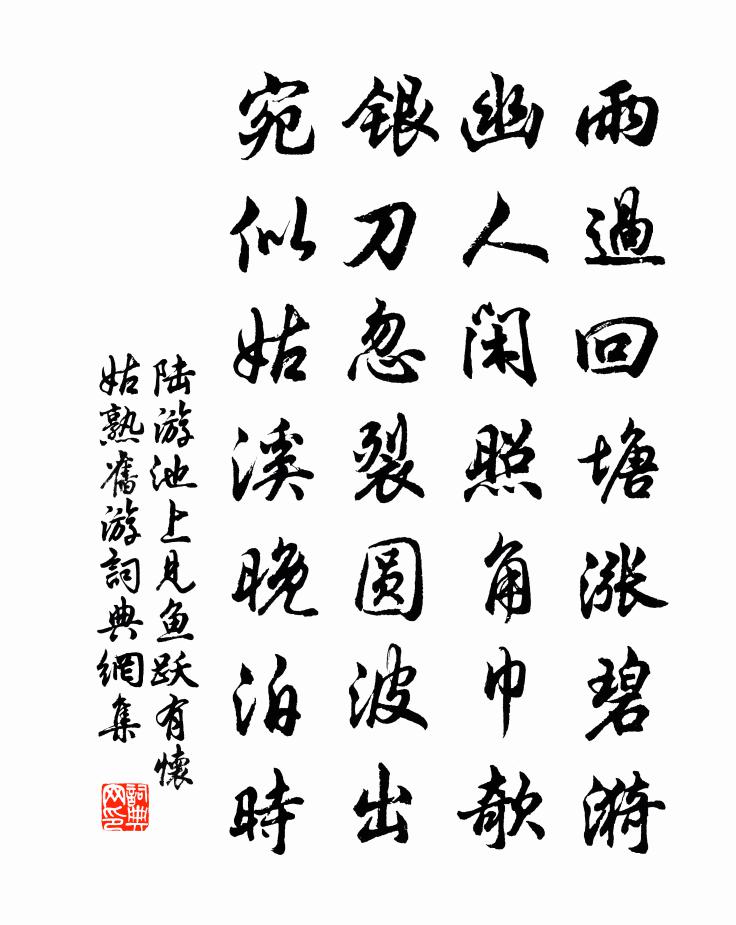 雨過回塘漲碧漪
幽人閑照角巾欹
銀刀忽裂圆波出
宛似姑溪晚泊時
陆游池上見鱼跃有懷
姑熟舊游詞典網集
詞典
网印